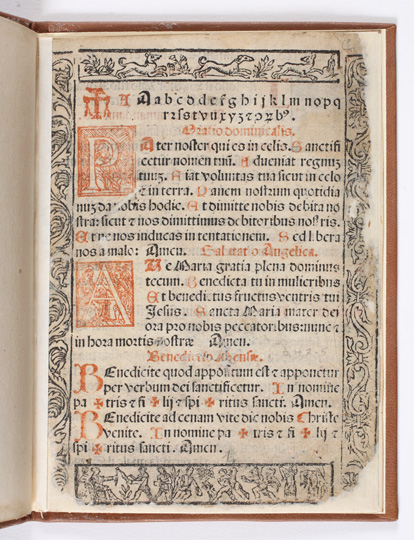 ✠ A A a b c d d e f g h i j k l m n o p q
r ꝛ ſ s t v u x y z ⁊ ꝯ
Oratio dominicalis.
PAter noster qui es in celis. Sanctifi
cetur nomen tuū. Adueniat regnuz
tuuz. Fiat voluntas tua sicut in celo
⁊ in terra. Panem nostrum quotidia
nuz da nobis hodie. Et dimitte nobis debita no
stra: sicut ⁊ nos dimittimus debitoribus nostris.
Et ne nos inducas in tentationem. Sed libera
nos a malo: Amen. Salutatio Angelica.
AVe Maria gratia plena dominus
tecum. Benedicta tu in mulieribus
Et benedictus fructus ventris tui
Jesus. Sancta Maria mater dei
ora pro nobis peccatoribus: nunc ⁊
in hora mortis nostræ Amen.
Benedictio Mensæ.
BEnedicite quod appositum est ⁊ apponetur
per verbum dei sanctificetur. In nomine
pa ✠ tris ⁊ fi ✠ lij ⁊ spi ✠ ritus sancti. Amen.
BEnedicite ad cenam vite die nobis Christe
venite. In nomine pa ✠ tris ⁊ fi ✠ lij ⁊
spi ✠ ritus sancti. Amen.